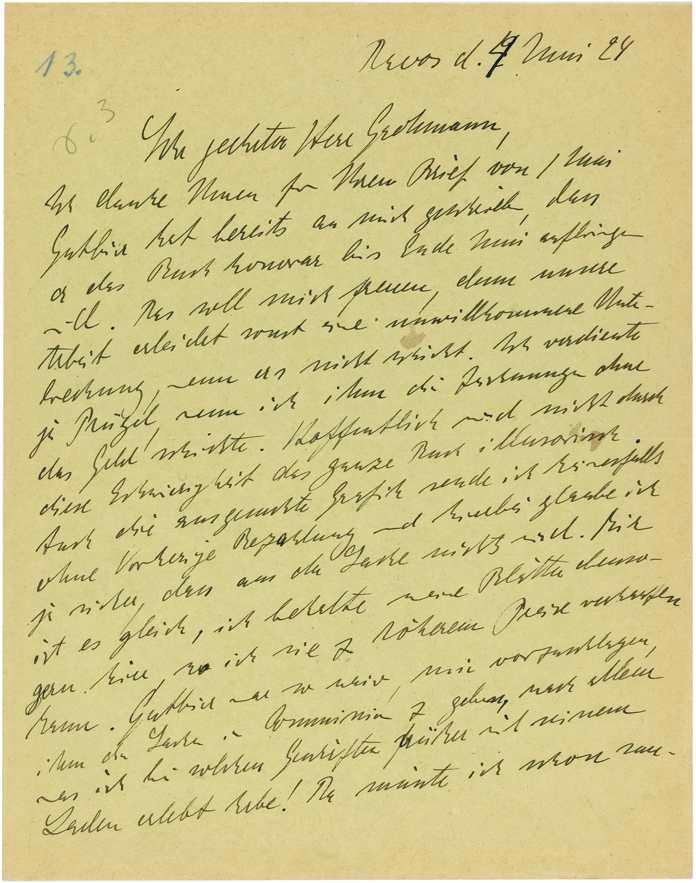 13.
Davos d. 9 Juni 24
6.3
Sehr geehrter Herr Grohmann,
Ich danke Ihnen für Ihren Brief vom 1 Juni
Gutbier hat bereits an mich geschrieben, dass
er das Buchhonorar bis Ende Juni aufbringen
will. Das soll mich freuen, denn unsere
Arbeit erleidet sonst eine unwillkommene Unter-
brechung, wenn er es nicht schickt. Ich verdiente
ja Prügel, wenn ich ihm die Zeichnungen ohne
das Geld schickte. Hoffentlich wird nicht durch
diese Schwierigkeit das ganze Buch illusorisch.
Auch die ausgesuchte Grafik sende ich keinesfalls
ohne Vorherige Bezahlung und hierbei glaube ich
ja sicher, dass aus der Sache nichts wird. Mir
ist es gleich, ich behalte meine Blätter ebenso-
gern hier, wo ich sie z höherem Preise verkaufen
kann. Gutbier war so naiv, mir vorzuschlagen,
ihm die Sachen in Commission z geben, nach allem
was ich bei solchen Geschäften früher mit seinem
Laden erlebt habe! Da müsste ich schon